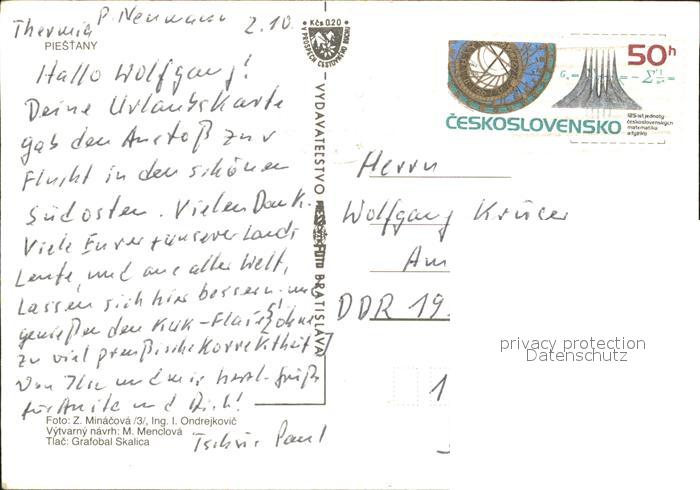 Thermia P. Neumann 2.10.
PIEŠŤANY
Hallo Wolfgang!
Deine Urlaubskarte
gab den Anstoß zur
Flucht in den schönen
Südosten. Vielen Dank.
Viele Eurer + unserer Lands
Leute, und aus aller Welt,
lassen sich hier bessern und
genießen den KuK-Flair (ohne
zu viel preußische Korrektheit)
Von und mir herzl. Grüße
für und Dich!
Tschüs Paul
Foto: Z. Mináčová /3/, Ing. I. Ondrejkovič
Výtvarný návrh: M. Menclová
Tlač: Grafobal Skalica
Kčs 0,20
V PROSPECH CESTOVNÉHO RUCHU
VYDAVATEĽSTVO
BRATISLAVA
50h
ČESKOSLOVENSKO
125 let jednoty
československých
matematiků
a fyziků
Herrn
Wolfgang Krüger
Am
DDR 19.
1
privacy protection
Datenschutz